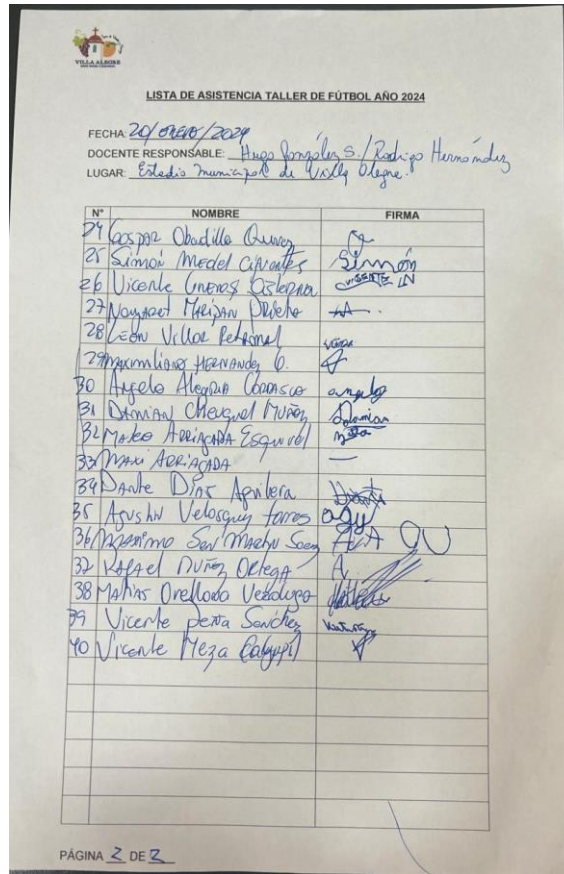 VILLA ALEGRE
LISTA DE ASISTENCIA TALLER DE FÚTBOL AÑO 2024
FECHA: 20/ENERO/2024
DOCENTE RESPONSABLE: Hugo González S./Rodrigo Hernández
LUGAR: Estadio Municipal de Villa Alegre.
N° NOMBRE FIRMA
24 Gaspar Obadilla
25 Simón Medel Cifuentes Simón
26 Vicente
27 Maripan Prieto
28 León Villar Retamal
29 Maximiliano Hernandez O.
30 Angelo Alegria Carrasco angelo
31 Damian Cheuquel Muñoz Damian
32 Mateo Arriagada Esquivel
33 Maxi Arriagada —
34 Dante Díaz Aguilera
35 Agustin Velasquez Torres agu
36 Maximo San Martin Saez
37 Rafael Nuñez Ortega
38 Matias Orellana Verdugo
39 Vicente Peña Sanchez
40 Vicente Meza
PÁGINA 2 DE 2